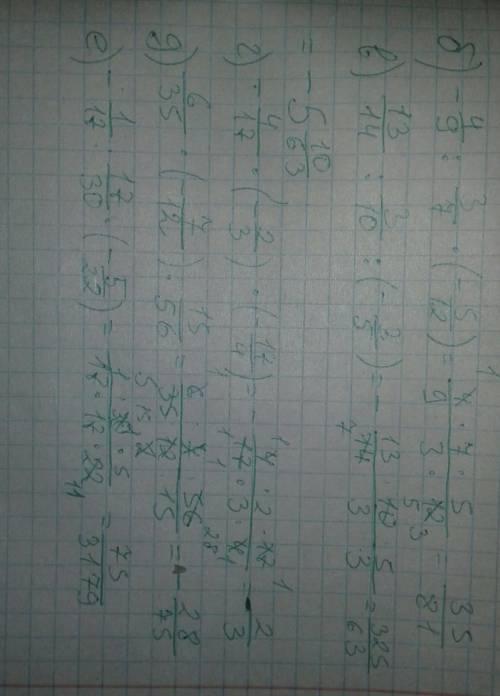 б) -4/9 : 3/7 · (-5/12) = 4 · 7 · 5 / 9 · 3 · 12 = 35/81
в) 13/14 : 3/10 : (-3/5) = - 13 · 10 · 5 / 14 · 3 · 3 = 325/63
= -5 10/63
г) -4/17 · (-2/3) · (-17/4) = - 4 · 2 · 17 / 17 · 3 · 4 = - 2/3
д) 6/35 · (-7/12) · 15/56 = 6 · 7 · 56 / 35 · 12 · 15 = - 28/75
е) -1/17 : 17/30 · (-5/22) = 1 · 30 · 5 / 17 · 17 · 22 = 75/3179